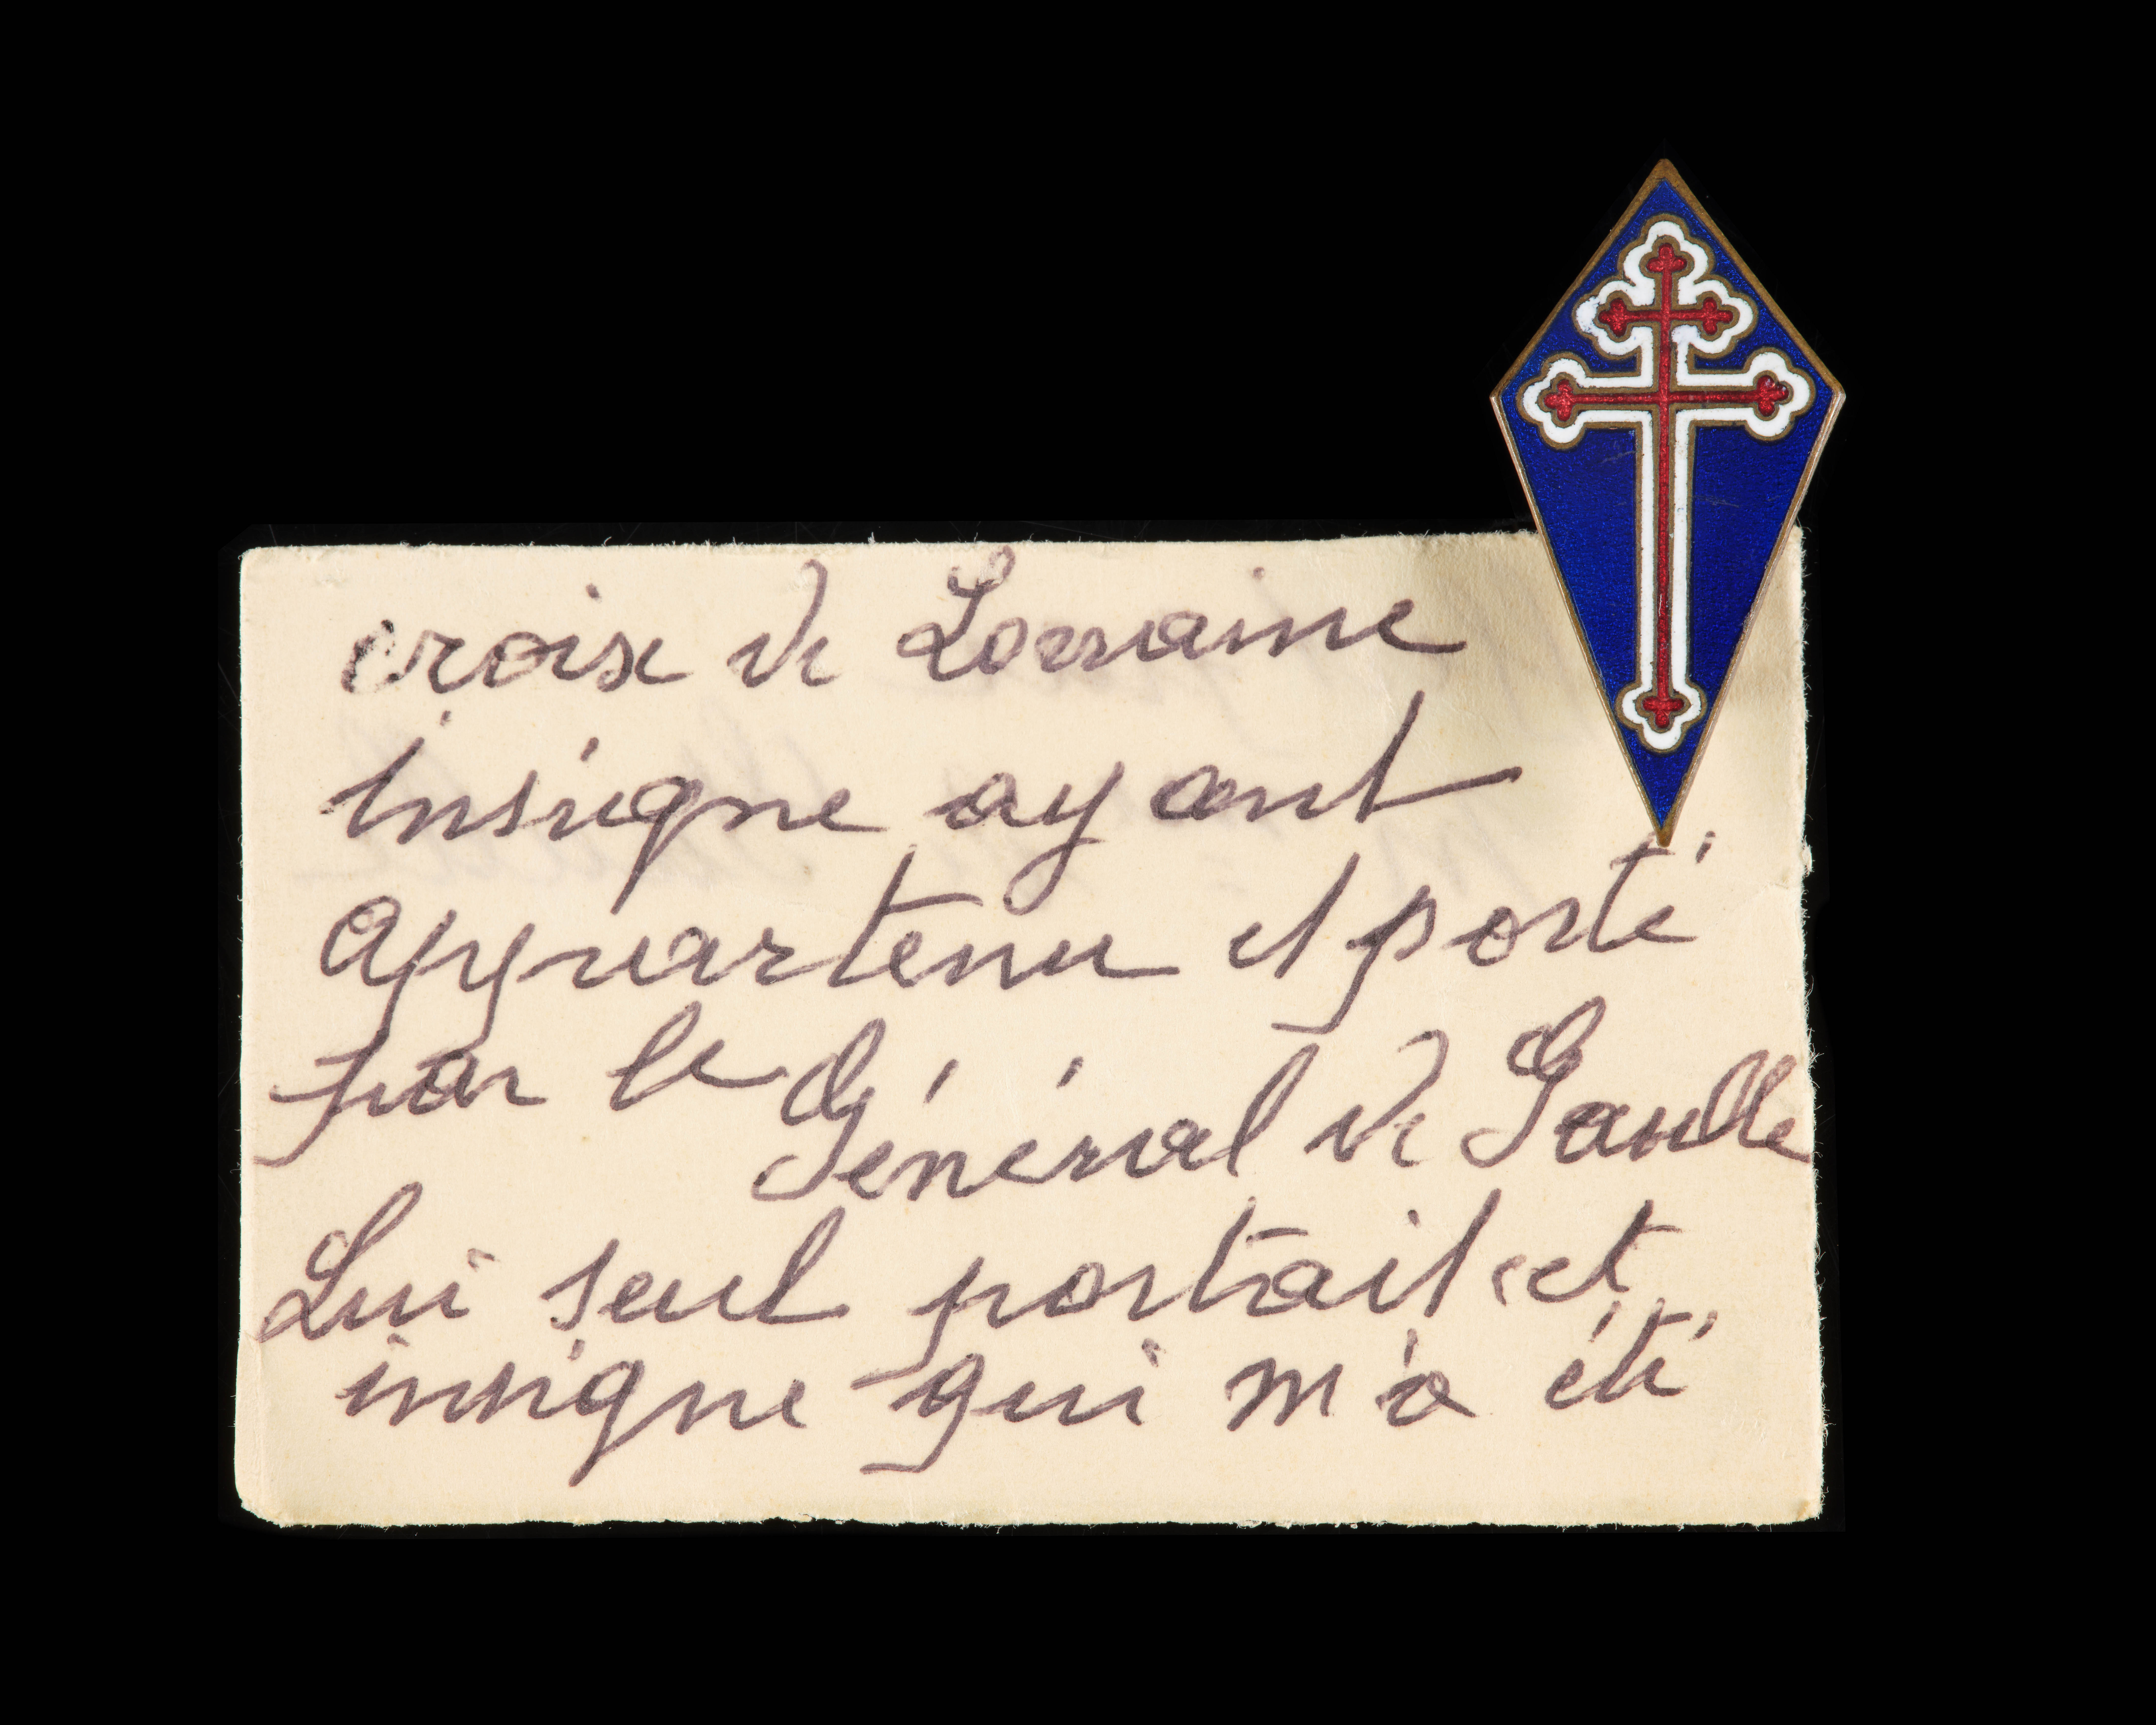 croix de Lorraine
insigne ayant
appartenu et porté
par le Général de Gaulle
Lui seul portait cet
insigne qui m'a été